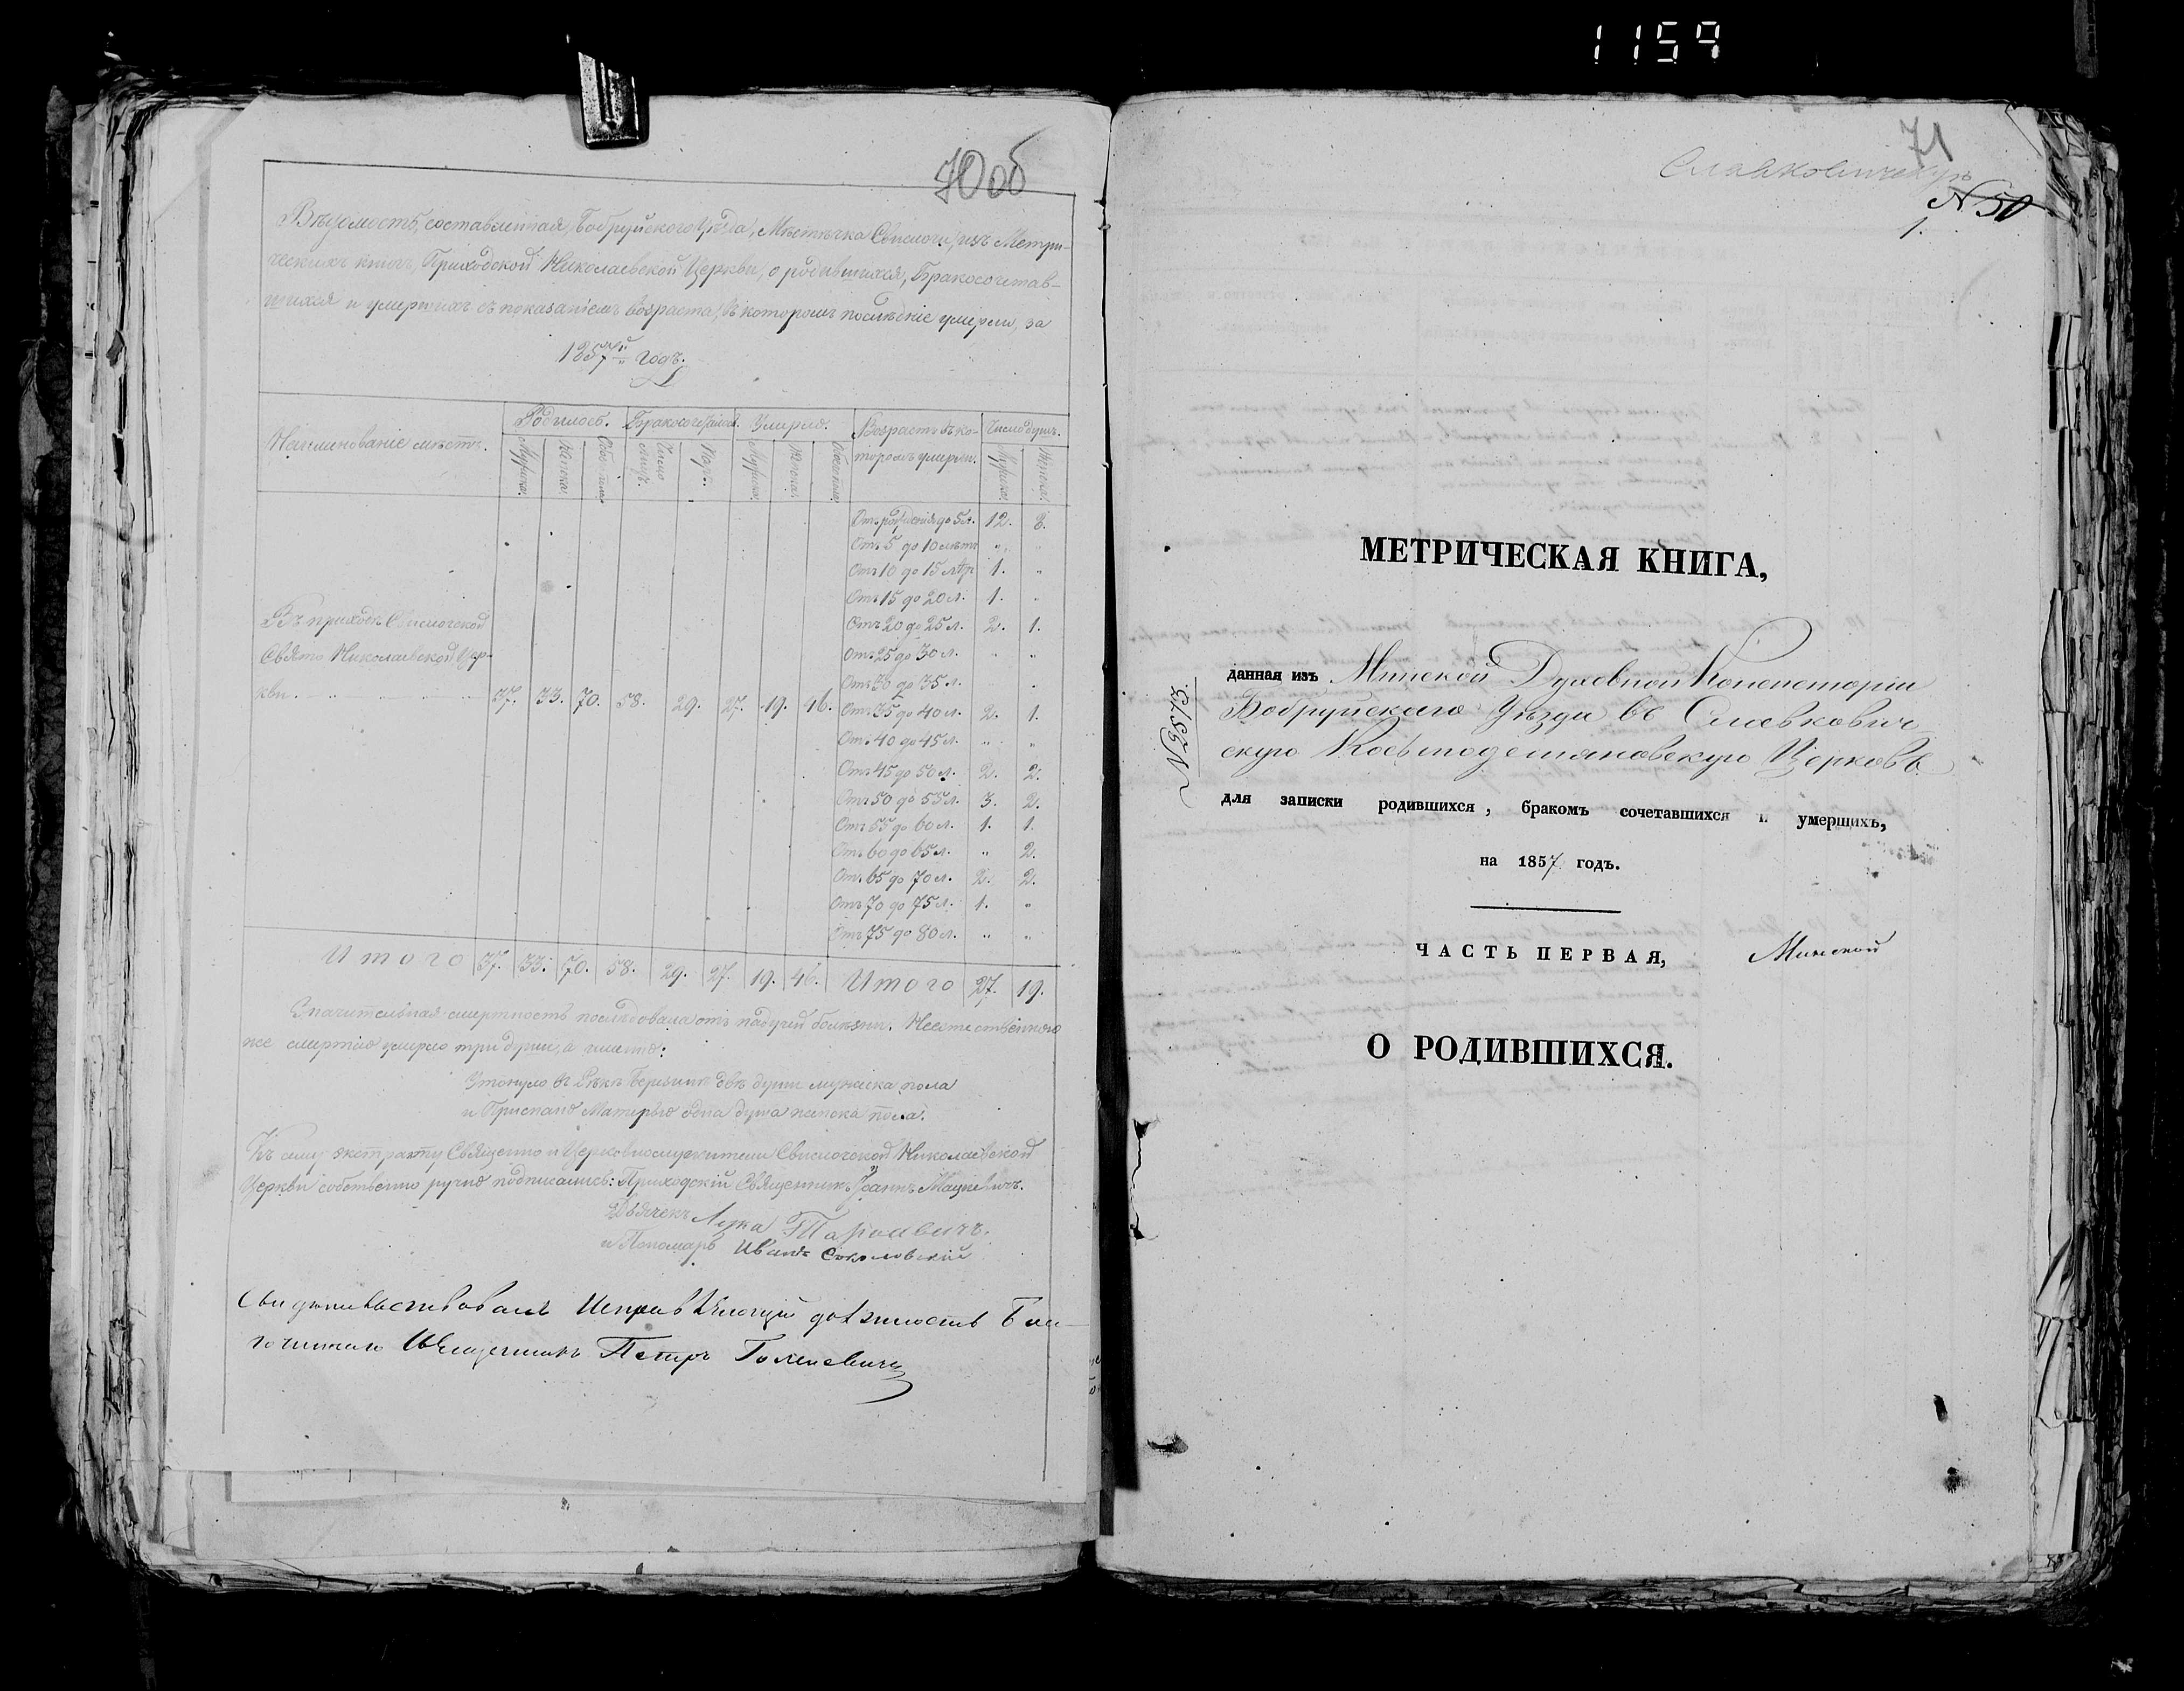 1159
70 об
Вѣдомость, составленная, Бобруйскаго Уѣзда, Мѣстечка Свислочи, изъ Метри-
ческихъ книгъ, Приходской Николаевской Церкви, о родившихся, Бракосочетав-
шихся и умершихъ съ показаніемъ возраста, въ которомъ послѣдніе умерли, за
1857й годъ.
Наименованіе мѣстъ. Родилось. Бракосочеталось. Умерло. Возрастъ въ ко- Число душъ.
Мужска. Женска. Обоего пола Число лицъ. Паръ. Мужска. Женска. Обоего пола торомъ умерли. Мужска. Женска.
Отъ рожденія до 5 л. 12. 8.
Отъ 5 до 10 лѣтъ „ „
Отъ 10 до 15 лѣтъ 1. „
Отъ 15 до 20 л. 1. „
Въ приходѣ Свислочской Отъ 20 до 25 л. 2. 1.
Свято Николаевской Цер- Отъ 25 до 30 л. „ „
Отъ 30 до 35 л. „
кви. 37. 33. 70. 58. 29. 27. 19. 46. Отъ 35 до 40 л. 2. 1.
От. 40 до 45 л. „ „
Отъ 45 до 50 л. 2. 2.
Отъ 50 до 55 л. 3. 2.
Отъ 55 до 60 л. 1. 1.
Отъ 60 до 65 л. „ 2.
От. 65 до 70 л. 2. 2.
Отъ 70 до 75 л. 1. „
Отъ 75 до 80 л. „ „
Итого 37. 33. 70. 58. 29. 27. 19. 46. Итого 27. 19.
Значительная смертность послѣдовала отъ падучей болѣзни. Неестественною
же смертію умерло три души, а именно:
Утонуло въ Рѣкѣ Березинѣ двѣ души мужска пола
и Приспано Матерью одна душа женска пола.
Къ сему экстракту Священно и Церковнослужители Свислочской Николаевской
Церкви собственно ручно подписались: Приходскій Священникъ Іоаннъ Мацкевичъ.
Дьячекъ Лука
и Пономарь Иванъ Соколовскій
Свидѣтельствовалъ Исправляющій должность Бла-
гочиннаго Священникъ Петръ
71
Славковичскую
N 50
1.
МЕТРИЧЕСКАЯ КНИГА,
данная изъ Минской Духовной Консисторіи
Бобруйскаго Уѣзда въ Славкович
скую Космодемяновскую Церковь
N 2573.
для записки родившихся, бракомъ сочетавшихся и умершихъ,
на 1857 годъ.
ЧАСТЬ ПЕРВАЯ, Минской
О РОДИВШИХСЯ.